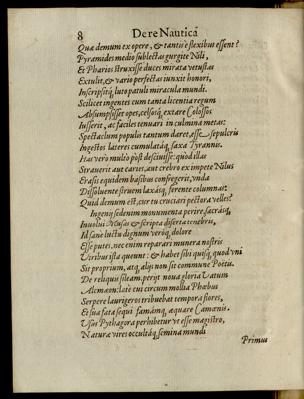 8 De re Nauticâ
Quæ demum ex opere, & tantis e flexibus essent?
Pyramides medio sublectas gurgite Nili,
Et Pharios struxisse duces mirata vetustas
Extulit, & vario perfectas iunxit honori,
Inscripsitq́ luto patuli miracula mundi.
Scilicet ingentes cum tanta licentia regum
Absumpsisset opes, celsosq́ extare Colossos
Iusserit, ac faciles tenuari in culmina metas:
Spectaclum populis tantum daret, esse sepulcris
Ingestos lateres cumulatáq, saxa Tyrannis.
Has verò multo pòst desciuisse: quòd illas
Strauerit aut caries, aut crebro ex impete Nilus
Erasis equidem basibus confregerit, vnda
Dissoluente struem laxásq, ferente columnas.
Quid demum est, cur tu cruciari pectora velles?
Ingenij sedenim monumenta perire, sacrásq,
Inuolui Musas & scripta diserta tenebris,
Id sanè luctu dignum veróq, dolore
Esse putes, nec enim reparari munera nostris
Viribus ista queunt: & habet sibi quisq, quod vni
Sit proprium, atq, alijs non sit commune Poetis.
De reliquis sileam. perijt noua gloria Vatum
Alcmæon: latè cui circum mollia Phœbus
Serpere laurigeros tribuebat tempora flores,
Et sua fata sequi famámq, æquare Camœnis.
Vsus Pythagora perhibetur vt esse magistro,
Naturæ vires occultáq, semina mundi
Primus